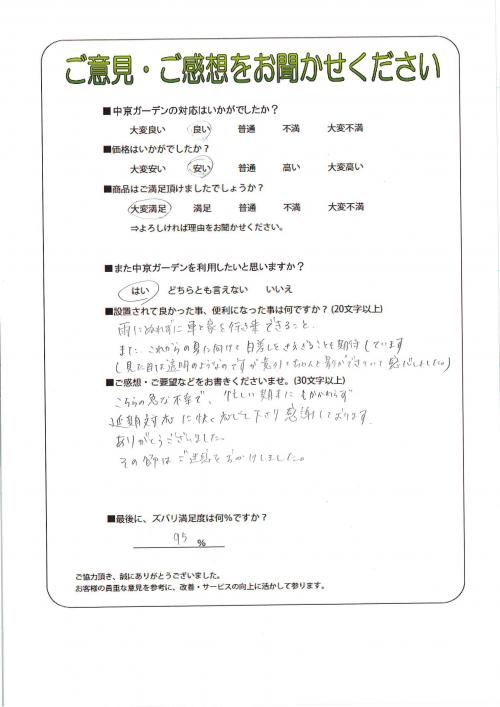 ご意見・ご感想をお聞かせください
■中京ガーデンの対応はいかがでしたか?
大変良い 良い 普通 不満 大変不満
■価格はいかがでしたか?
大変安い 安い 普通 高い 大変高い
■商品はご満足頂けましたでしょうか?
大変満足 満足 普通 不満 大変不満
⇒よろしければ理由をお聞かせください。
■また中京ガーデンを利用したいと思いますか?
はい どちらとも言えない いいえ
■設置されて良かった事、便利になった事は何ですか?(20文字以上)
雨にぬれずに車と家を行き来できること。
また、これからの夏に向けて日差しをさえぎることも期待しています
(見た目は透明のようなのですが意外とちゃんと影ができていて感心しました。)
■ご感想・ご要望などをお書きくださいませ。(30文字以上)
こちらの急な不幸で、忙しい期末にもかかわらず
延期対応に快く応じて下さり感謝しております。
ありがとうございました。
その節はご迷惑をおかけしました。
■最後に、ズバリ満足度は何%ですか?
95 %
ご協力頂き、誠にありがとうございました。
お客様の貴重な意見を参考に、改善・サービスの向上に活かして参ります。